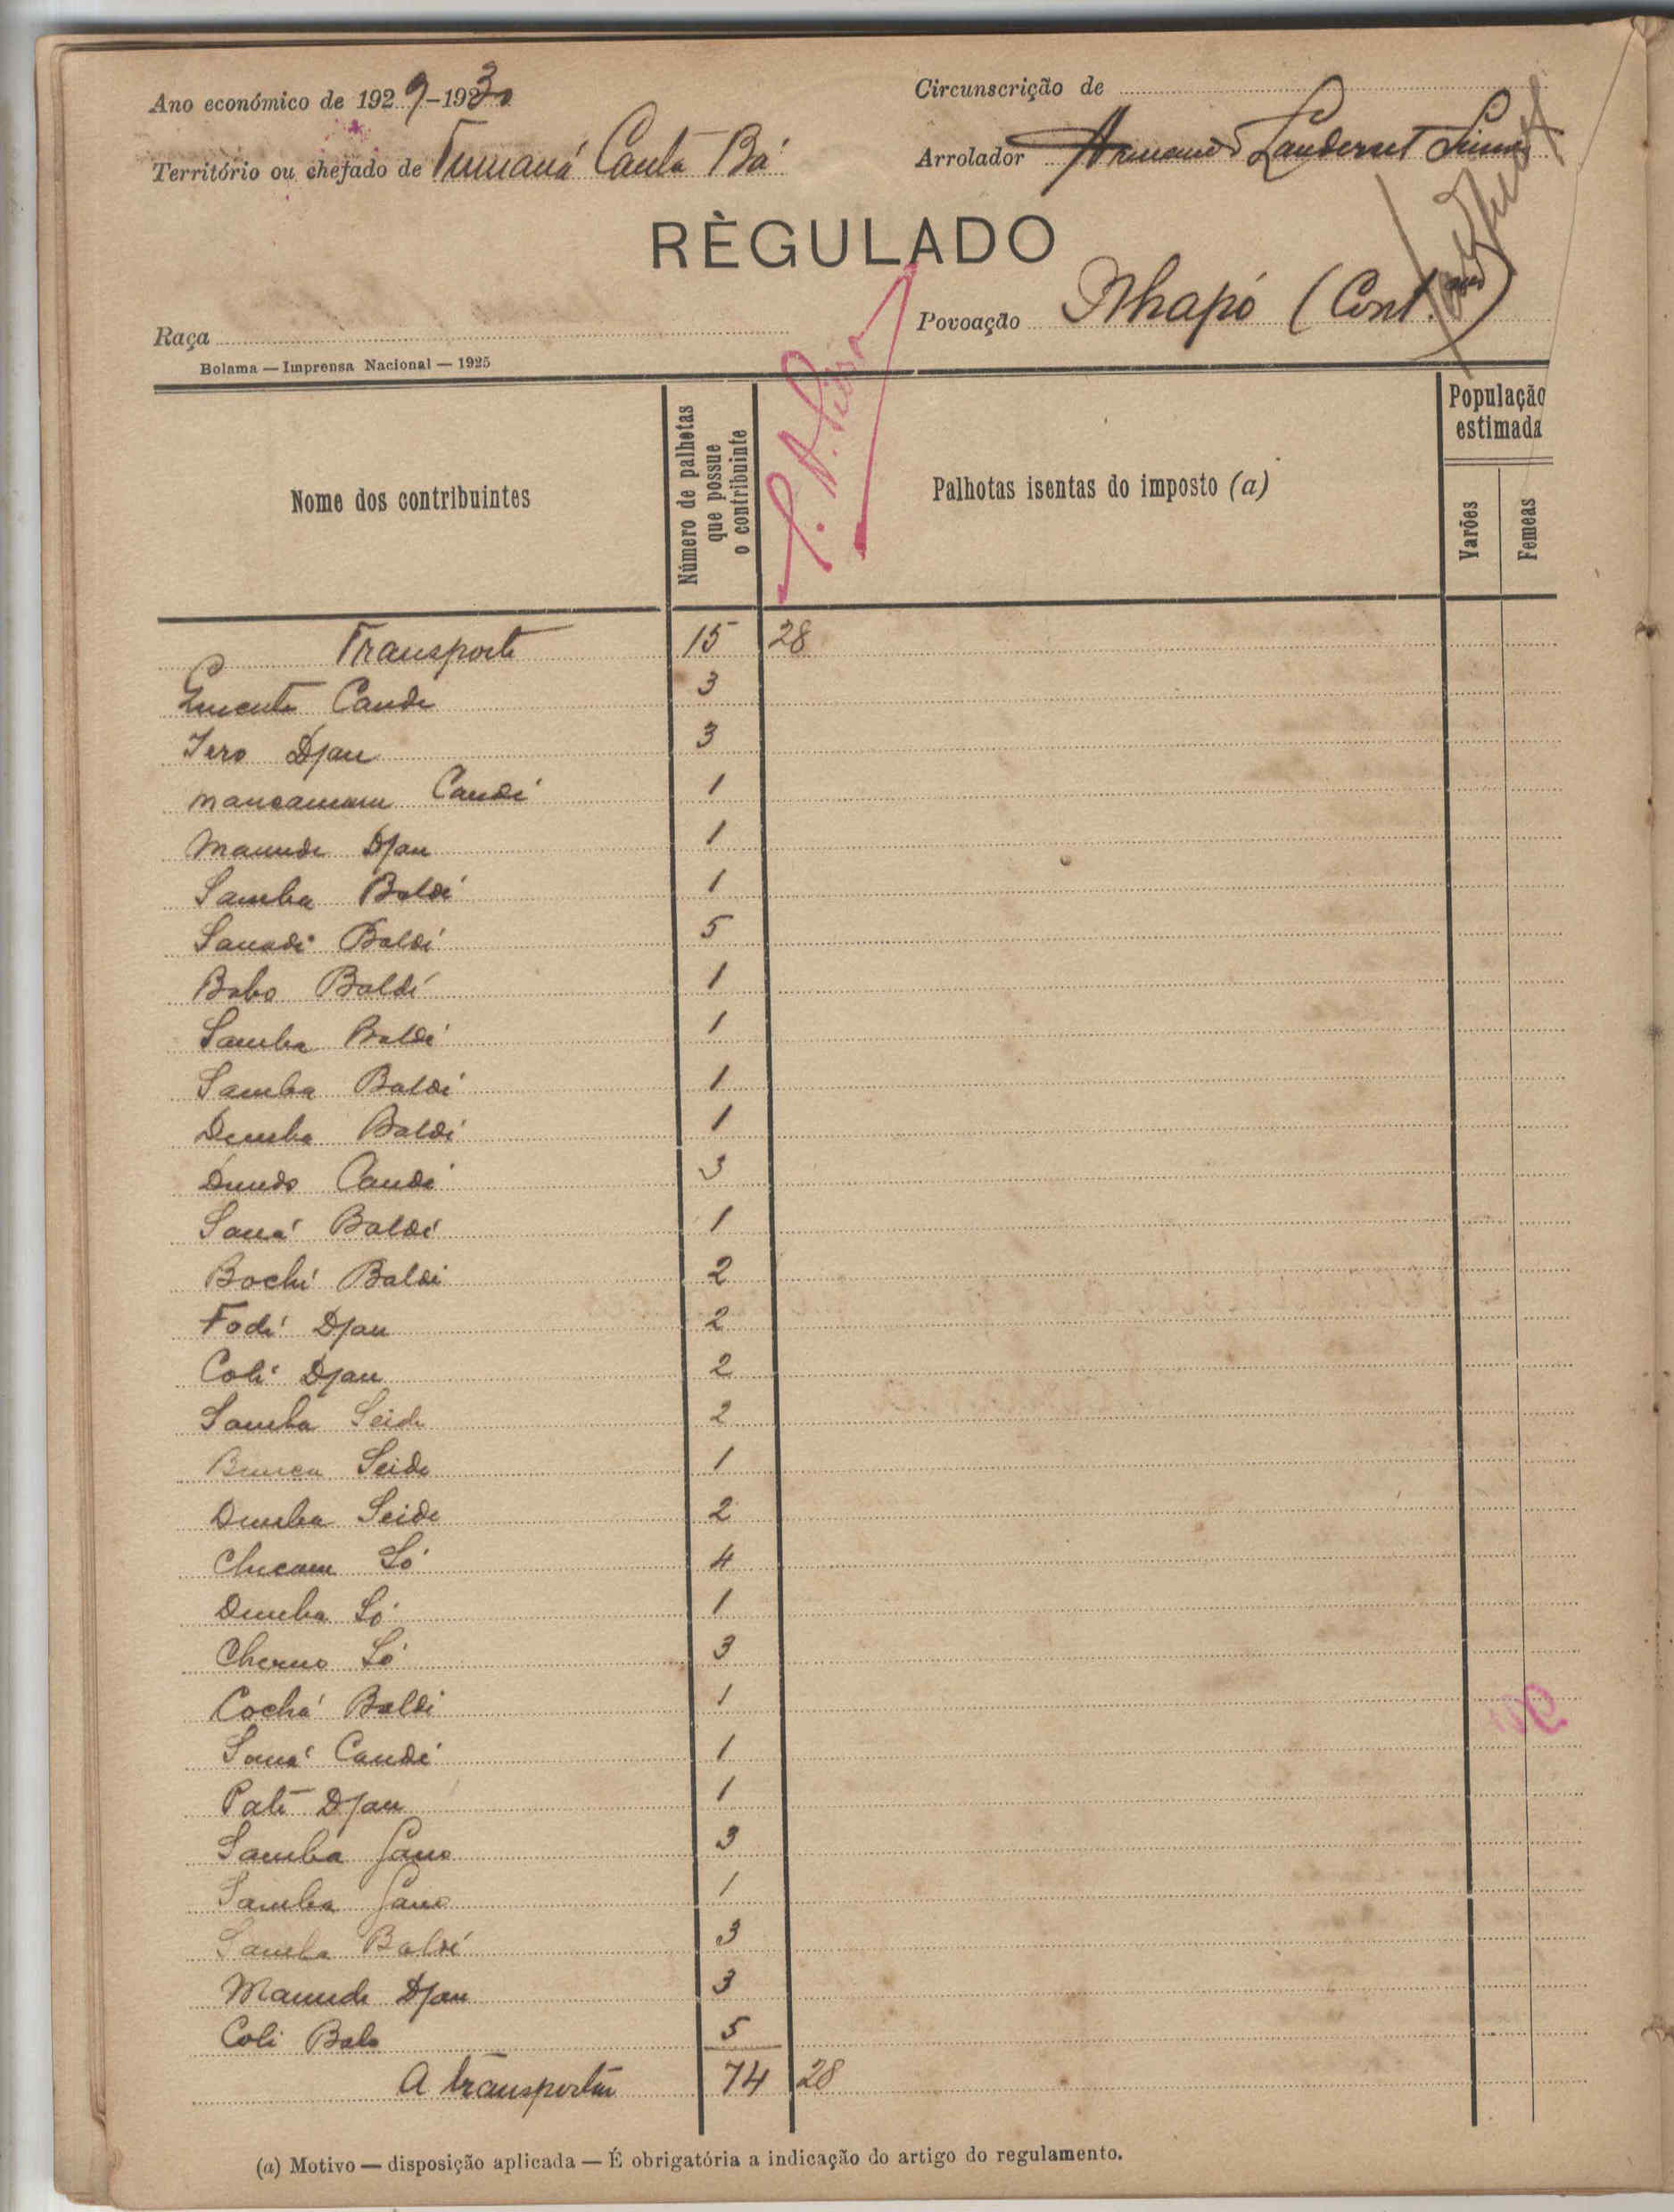 Ano económico de 1929-1930
Circunscrição de
Território ou chefado de Tumaná Canta Bá
Arrolador Armando Landerset Simões
RÈGULADO
Raça
Povoação Nhapó (Cont.ão)
Bolama — Imprensa Nacional — 1925
Nome dos contribuintes
Número de palhotas que possue o contribuinte
Palhotas isentas do imposto (a)
População estimada
Varões
Femeas
Transporte 15 28
Cande 3
Iero Djau 3
Candé 1
Maunde Djau 1
Samba Baldé 1
Baldé 5
Bobo Baldé 1
Samba Baldé 1
Samba Baldé 1
Demba Baldé 1
Candé 3
Saná Baldé 1
Bochi Baldé 2
Fodé Djau 2
Coli Djau 2
Samba Seide 2
Seide 1
Demba Seide 2
Só 4
Demba Só 1
Cherno Só 3
Cochá Baldé 1
Saná Candé 1
Paté Djau 1
Samba Gano 3
Samba Gano 1
Samba Baldé 3
Maunde Djau 3
Coli Balo 5
A transportar 74 28
(a) Motivo — disposição aplicada — É obrigatória a indicação do artigo do regulamento.